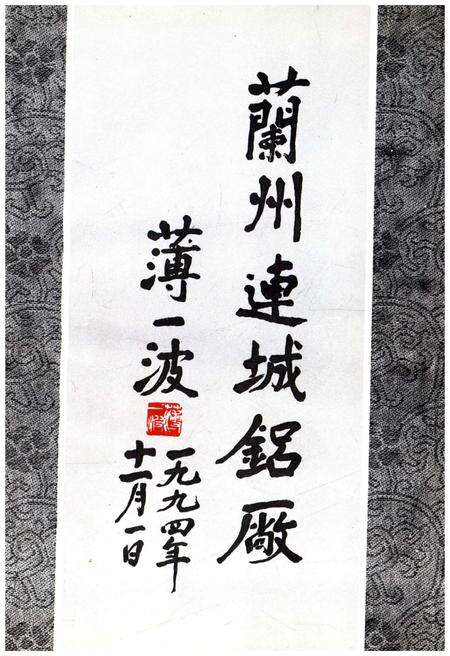 蘭州連城鋁廠
薄一波
薄一波
一九九四年
十一月一日